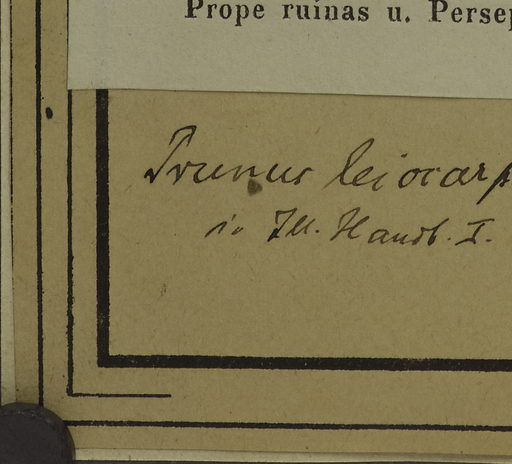 Prope ruinas u. Persep
Prunus leiocarp
in Ill. Handb. I.